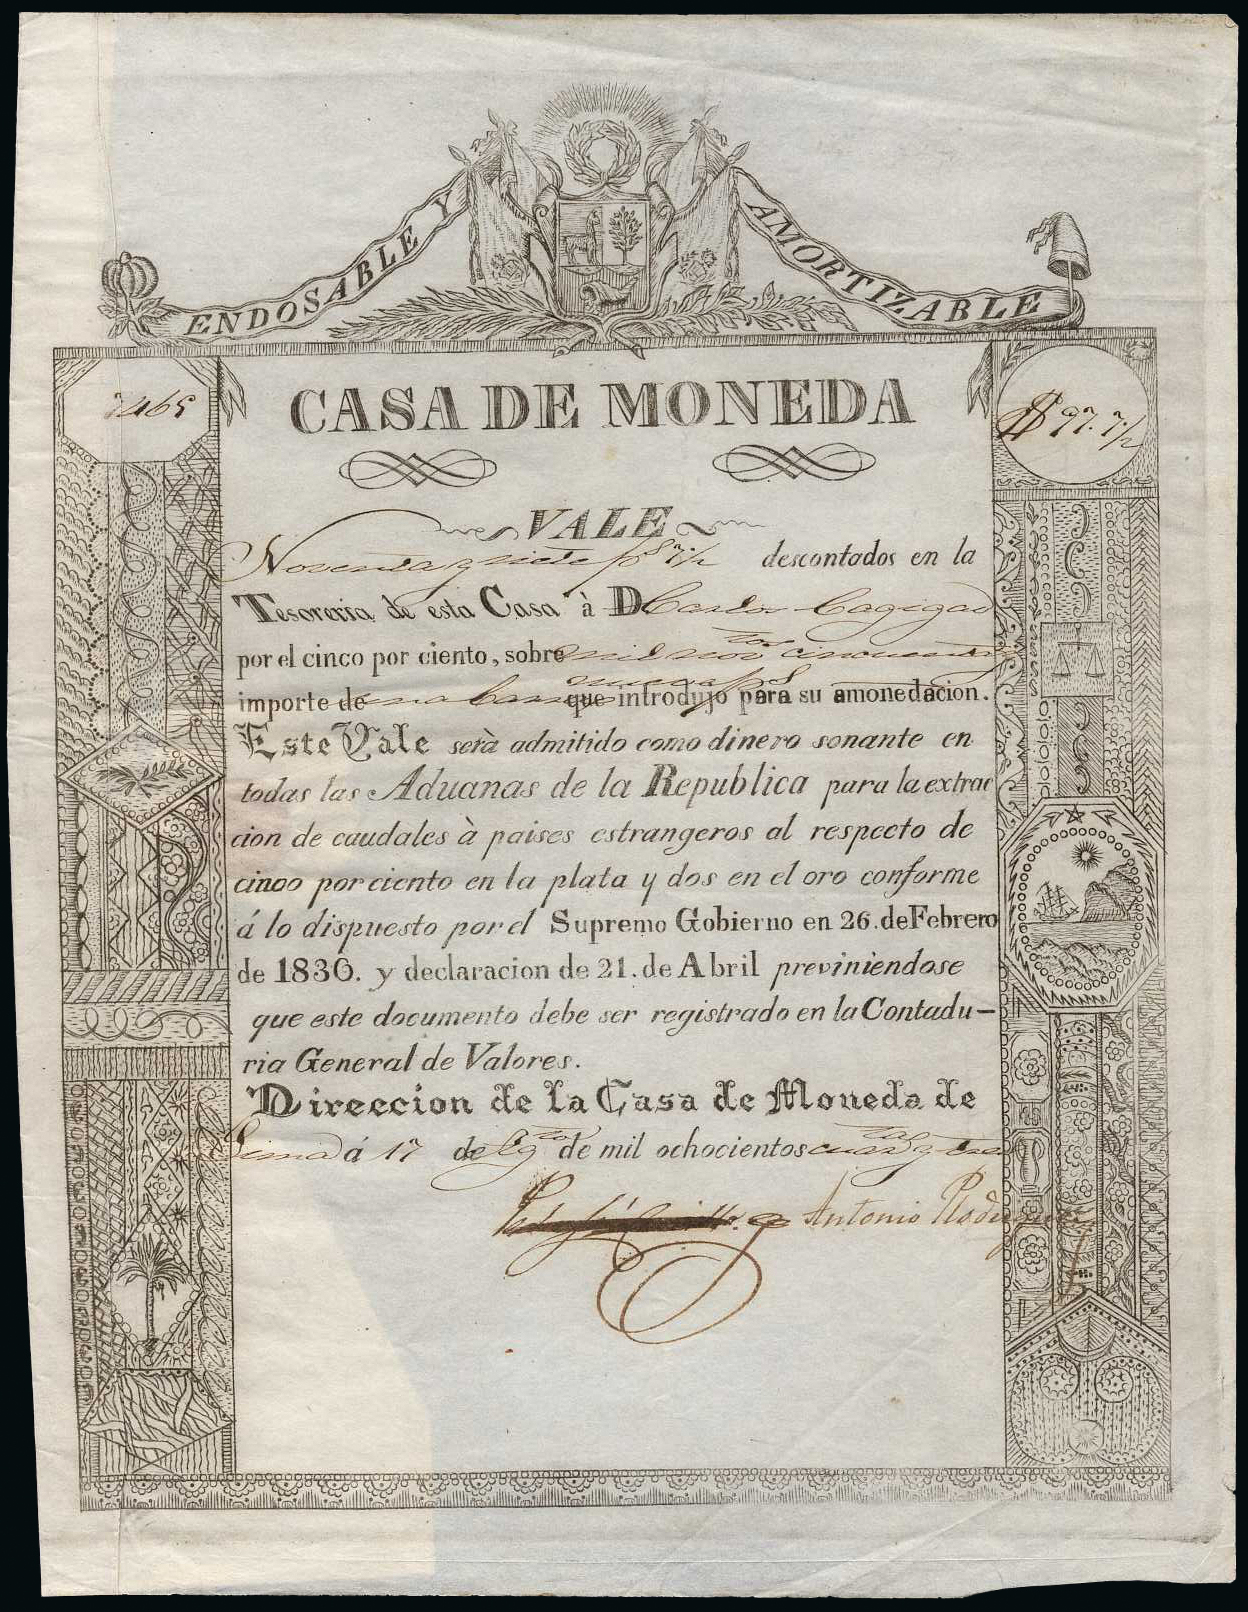 ENDOSABLE Y AMORTIZABLE
7465
CASA DE MONEDA
$ 97. 7 1/2
VALE
Noventa y siete ps 7 1/2 descontados en la
Tesoreria de esta Casa à D Carlos Cagigao
por el cinco por ciento, sobre mil nov tos cincuenta y
nueve ps
importe de una barra que introdujo para su amonedacion.
Este Vale serà admitido como dinero sonante en
todas las Aduanas de la Republica para la extrac
cion de caudales à paises estrangeros al respecto de
cinco por ciento en la plata y dos en el oro conforme
á lo dispuesto por el Supremo Gobierno en 26. de Febrero
de 1830. y declaracion de 21. de Abril previniendose
que este documento debe ser registrado en la Contadu-
ria General de Valores.
Direccion de la Casa de Moneda de
Lima á 17 de Ag to de mil ochocientos cuar ta y tres
Antonio Rodriguez